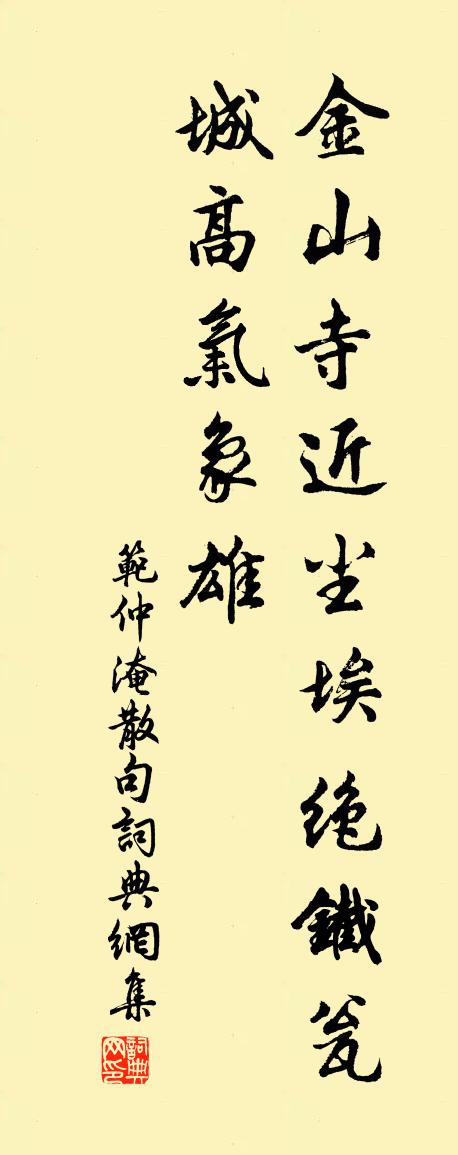 金山寺近尘埃绝鐵瓮
城高氣象雄
範仲淹散句詞典網集
詞典网印